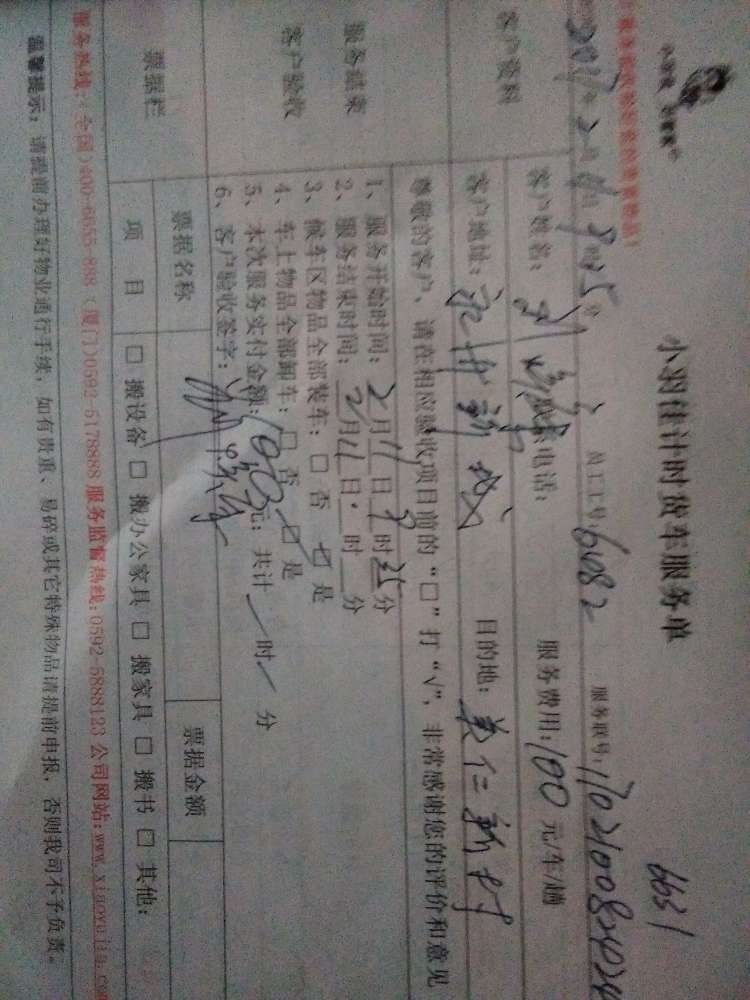 小羽佳计时货车服务单
6631
2017年2月11日9时35分 员工工号:6082 服务联号:
客户资料
客户姓名: 联系电话: 服务费用:100元/车/趟
客户地址: 目的地:美仁新村
尊敬的客户、请在相应验收项目前的“□”打“√”,非常感谢您的评价和意见
服务结束
客户验收
1、服务开始时间:2月11日9时35分
2、服务结束时间:2月11日 时 分
3、候车区物品全部装车:□否 □是
4、车上物品全部卸车:□否 □是
5、本次服务实付金额:100元;共计 时 分
6、客户验收签字:
票据栏
票据名称 票据金额
项 目 □ 搬设备 □ 搬办公家具 □ 搬家具 □ 搬书 □ 其他:
服务热线:全国)400-6655-888 (厦门)0592-5178888 服务监督热线:0592-5888123 公司网站:www.xiaoyujia.com
温馨提示:请提前办理好物业通行手续,如有贵重、易碎或其它特殊物品请提前申报,否则我司不予负责。